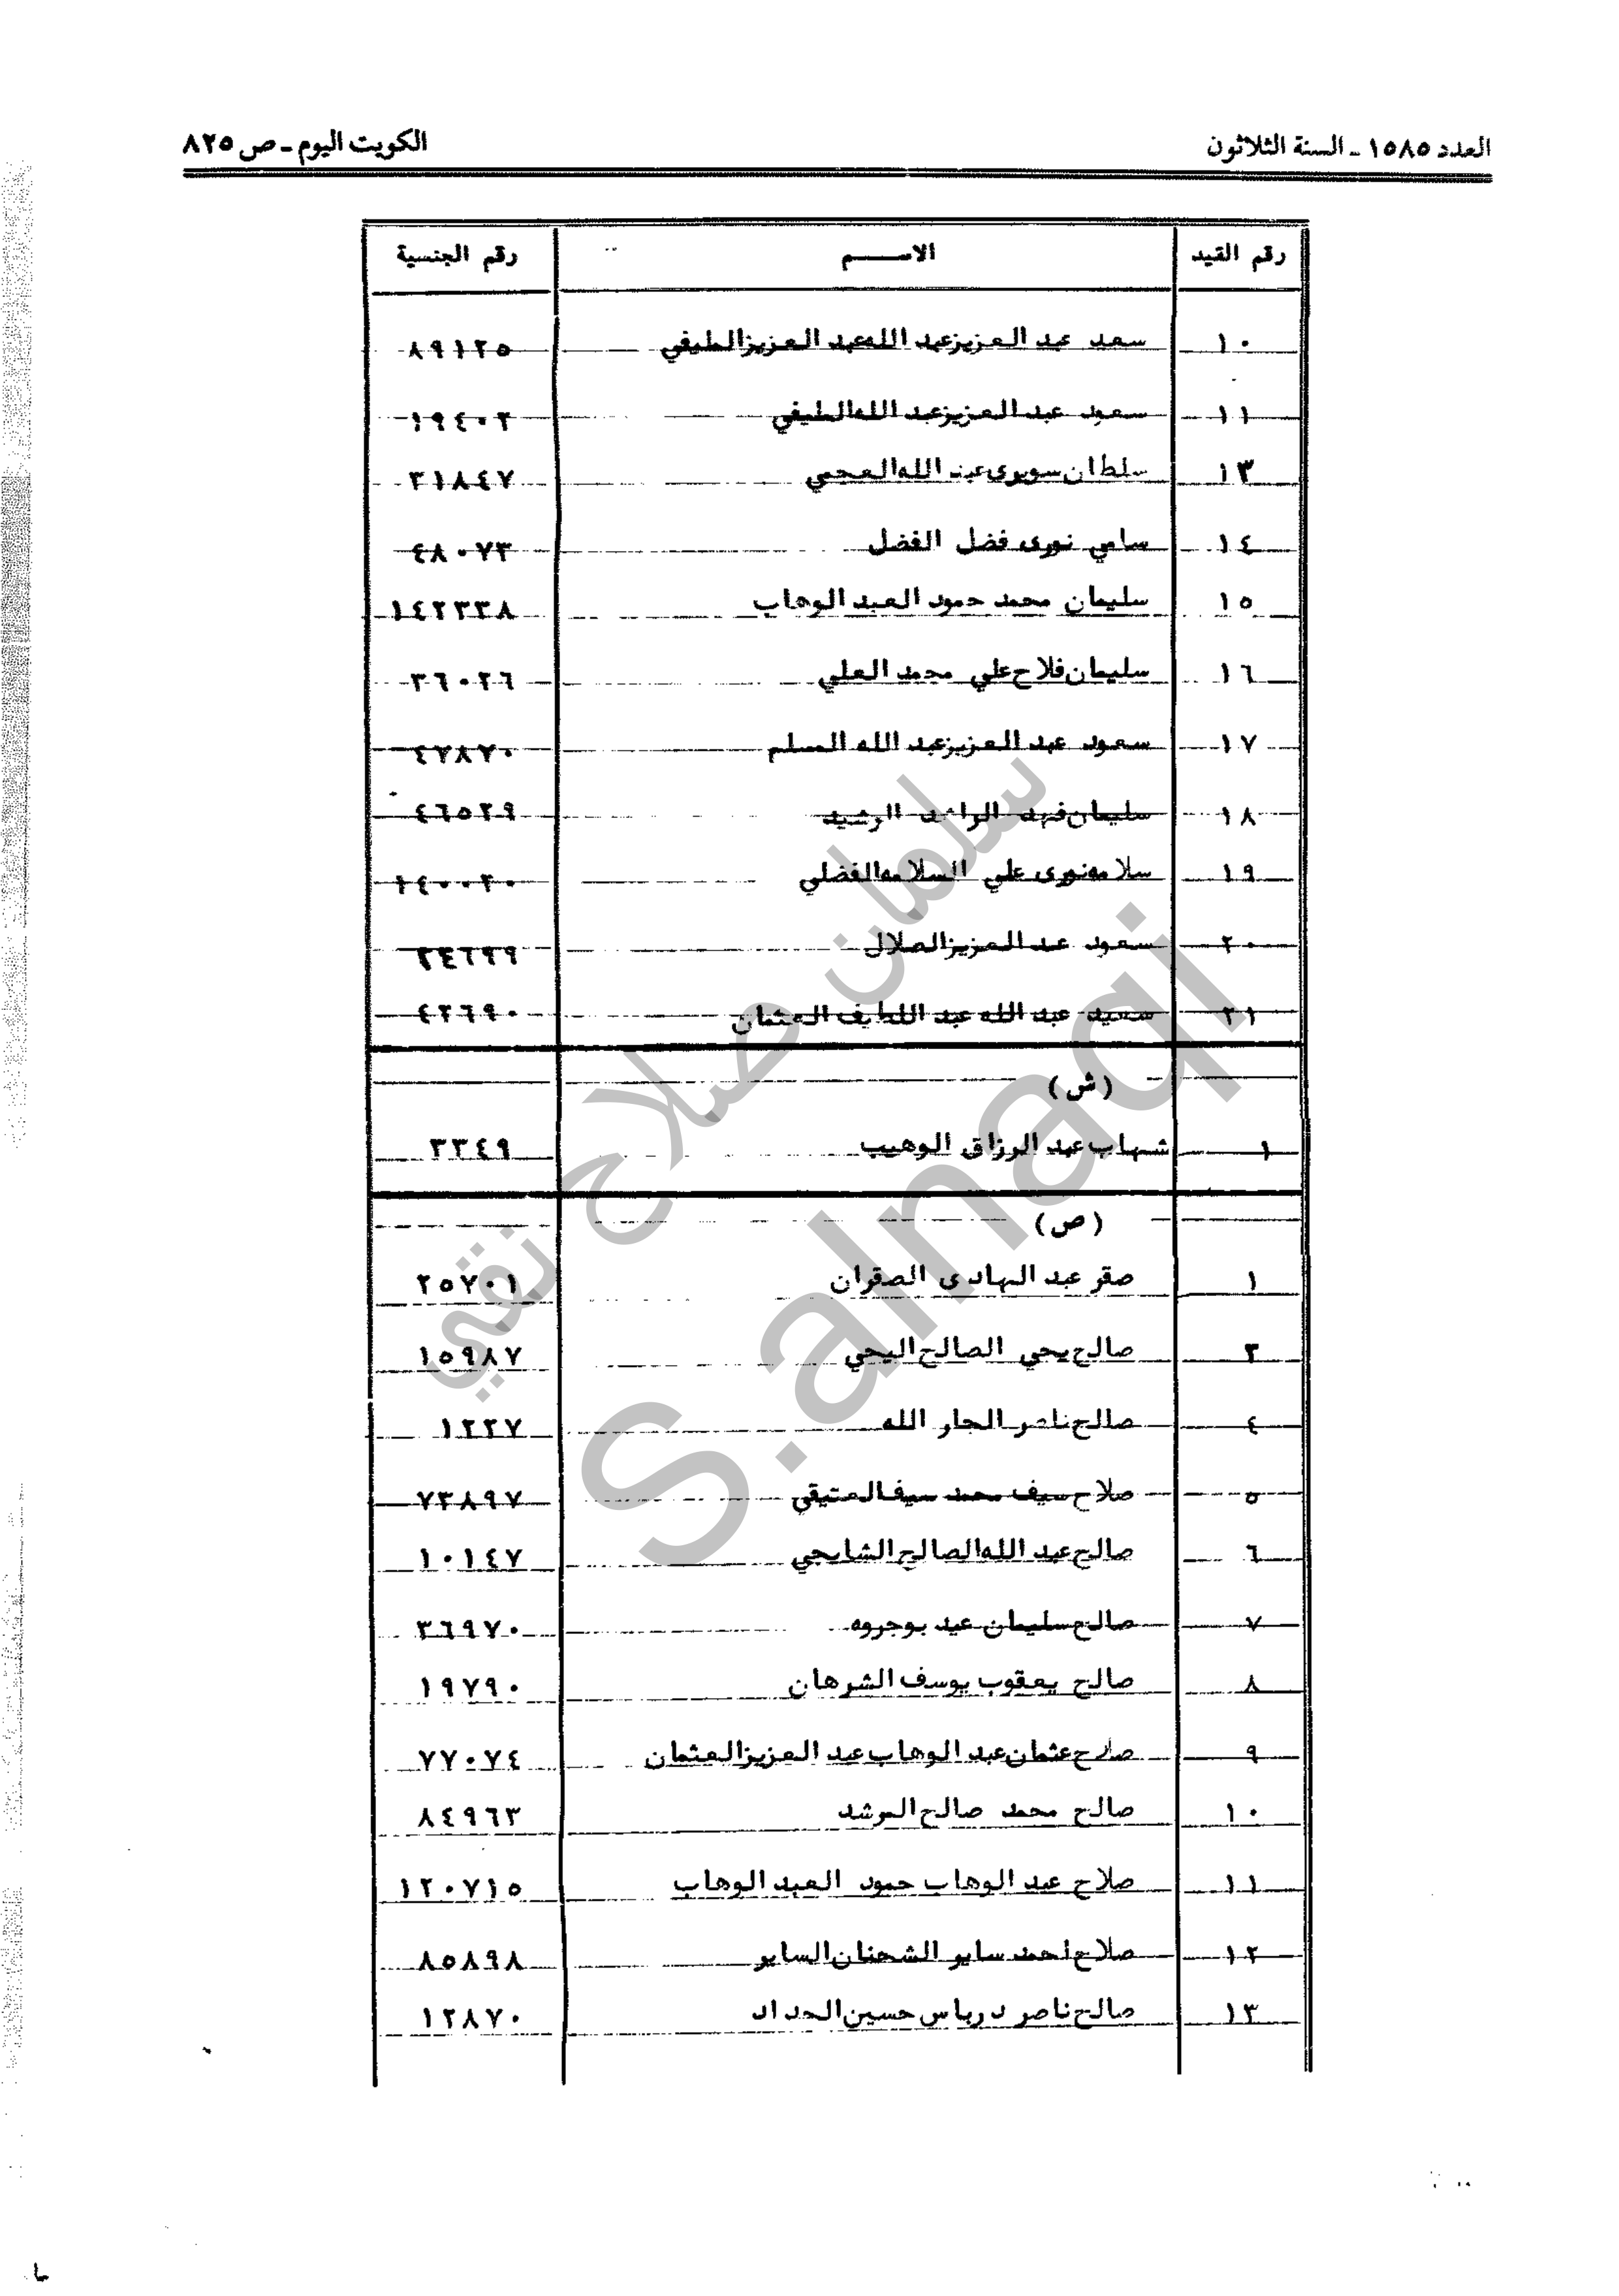 العدد ١٥٨٥ ـ السنة الثلاثون
الكويت اليوم ـ ص ٨٢٥
رقم القيد الاســـم رقم الجنسية
١٠ سعد عبد العزيز عبد الله عبد العزيز الطيفي ٨٩١٢٥
١١ سعود عبد العزيز عبد الله الطيفي ١٩٤٠٢
١٣ سلطان سويرى عبد الله العجمي ٣١٨٤٧
١٤ سامي نورى فضل الفضل ٤٨٠٧٣
١٥ سليمان محمد حمود العبد الوهاب ١٤٢٣٣٨
١٦ سليمان فلاح علي محمد العلي ٣٦٠٢٦
١٧ سعود عبد العزيز عبد الله المسلم ٤٧٨٧٠
١٨ سليمان فهد الراشد الرشيد ٤٦٥٢٩
١٩ سلامه نورى علي السلامه الفضلي ١٤٠٠٢٠
٢٠ سعود عبد العزيز الصلال ٢٤٦٩٩
٢١ سعيد عبد الله عبد اللطيف العثمان ٤٢٦٩٠
(ش)
١ شهاب عبد الرزاق الوهيب ٣٣٤٩
(ص)
١ صقر عبد الهادى الصقران ٢٥٧٠١
٣ صالح يحي الصالح اليحي ١٥٩٨٧
٤ صالح ناصر الجار الله ١٢٢٧
٥ صلاح سيف محمد سيف العتيقي ٧٣٨٩٧
٦ صالح عبد الله الصالح الشايجي ١٠١٤٧
٧ صالح سليمان عيد بوجروه ٣٦٩٧٠
٨ صالح يعقوب يوسف الشرهان ١٩٧٩٠
٩ صلاح عثمان عبد الوهاب عبد العزيز العثمان ٧٧٠٧٤
١٠ صالح محمد صالح المرشد ٨٤٩٦٣
١١ صلاح عبد الوهاب حمود العبد الوهاب ١٢٠٧١٥
١٢ صلاح احمد ساير الشحنان الساير ٨٥٨٩٨
١٣ صالح ناصر درباس حسين الحداد ١٢٨٧٠
سلمان صلاح نقي
S.alnaqi